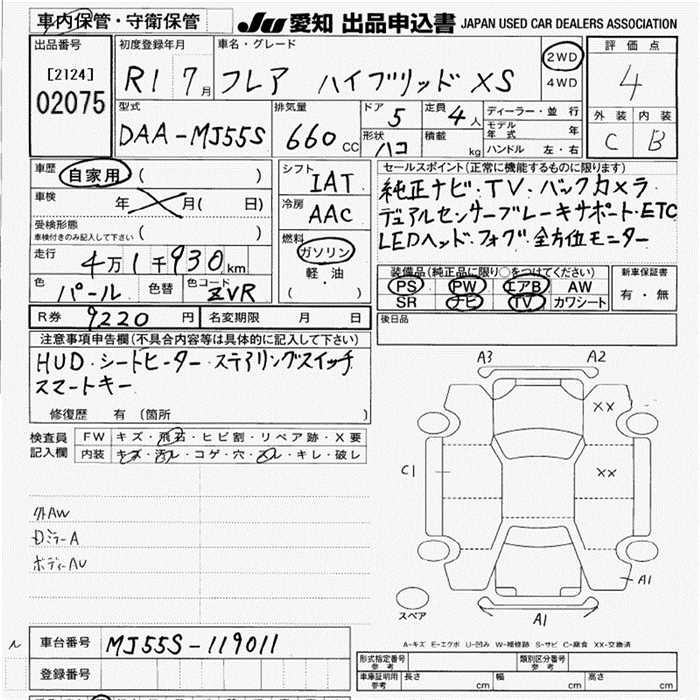 車内保管・守衛保管 JU 愛知 出品申込書 JAPAN USED CAR DEALERS ASSOCIATION
出品番号 初度登録年月 車名・グレード 2WD 評価点
[2124] R1 7月 フレア ハイブリッド XS 4WD 4
02075 型式 排気量 ドア 5 定員 4人 ディーラー・並行 外装 内装
DAA-MJ55S 660cc 形状 ハコ 積載 kg モデル年式 年 C B
ハンドル 左・右
車歴 自家用 ( ) シフト IAT セールスポイント(正常に機能するものに限ります)
車検 年 月( 日) 冷房 AAC 純正ナビ・TV・バックカメラ
受検形態 デュアルセンサーブレーキサポート・ETC
車検付きのみ記入して下さい ( ) 燃料 LEDヘッド・フォグ・全方位モニター
走行 4万1千930km ガソリン 装備品(純正品に限り○をつけてください) 新車保証書
色 パール 色替 色コード ZVR 軽・油 PS PW エアB AW 有・無
( ) SR ナビ TV カワシート
R券 9220円 名変期限 月 日 後日品
注意事項申告欄(不具合内容等は具体的に記入して下さい)
HUD・シートヒーター・ステアリングスイッチ
スマートキー
修復歴 有 (箇所 )
A3 A2
XX
検査員 FW キズ・飛石・ヒビ割・リペア跡・X要
記入欄 内装 キズ・汚レ・コゲ・穴・凹レ・キレ・破レ
C1 XX
外AW
Dミラー A
ボディーAU
A1
スペア A1
A-キズ E-エクボ U-凹み W-補修跡 S-サビ C-腐食 XX-交換済
車台番号 MJ55S-119011
登録番号 形式指定番号 参考 類別区分番号 参考
車庫証明用 参考 長さ cm 幅 cm 高さ cm